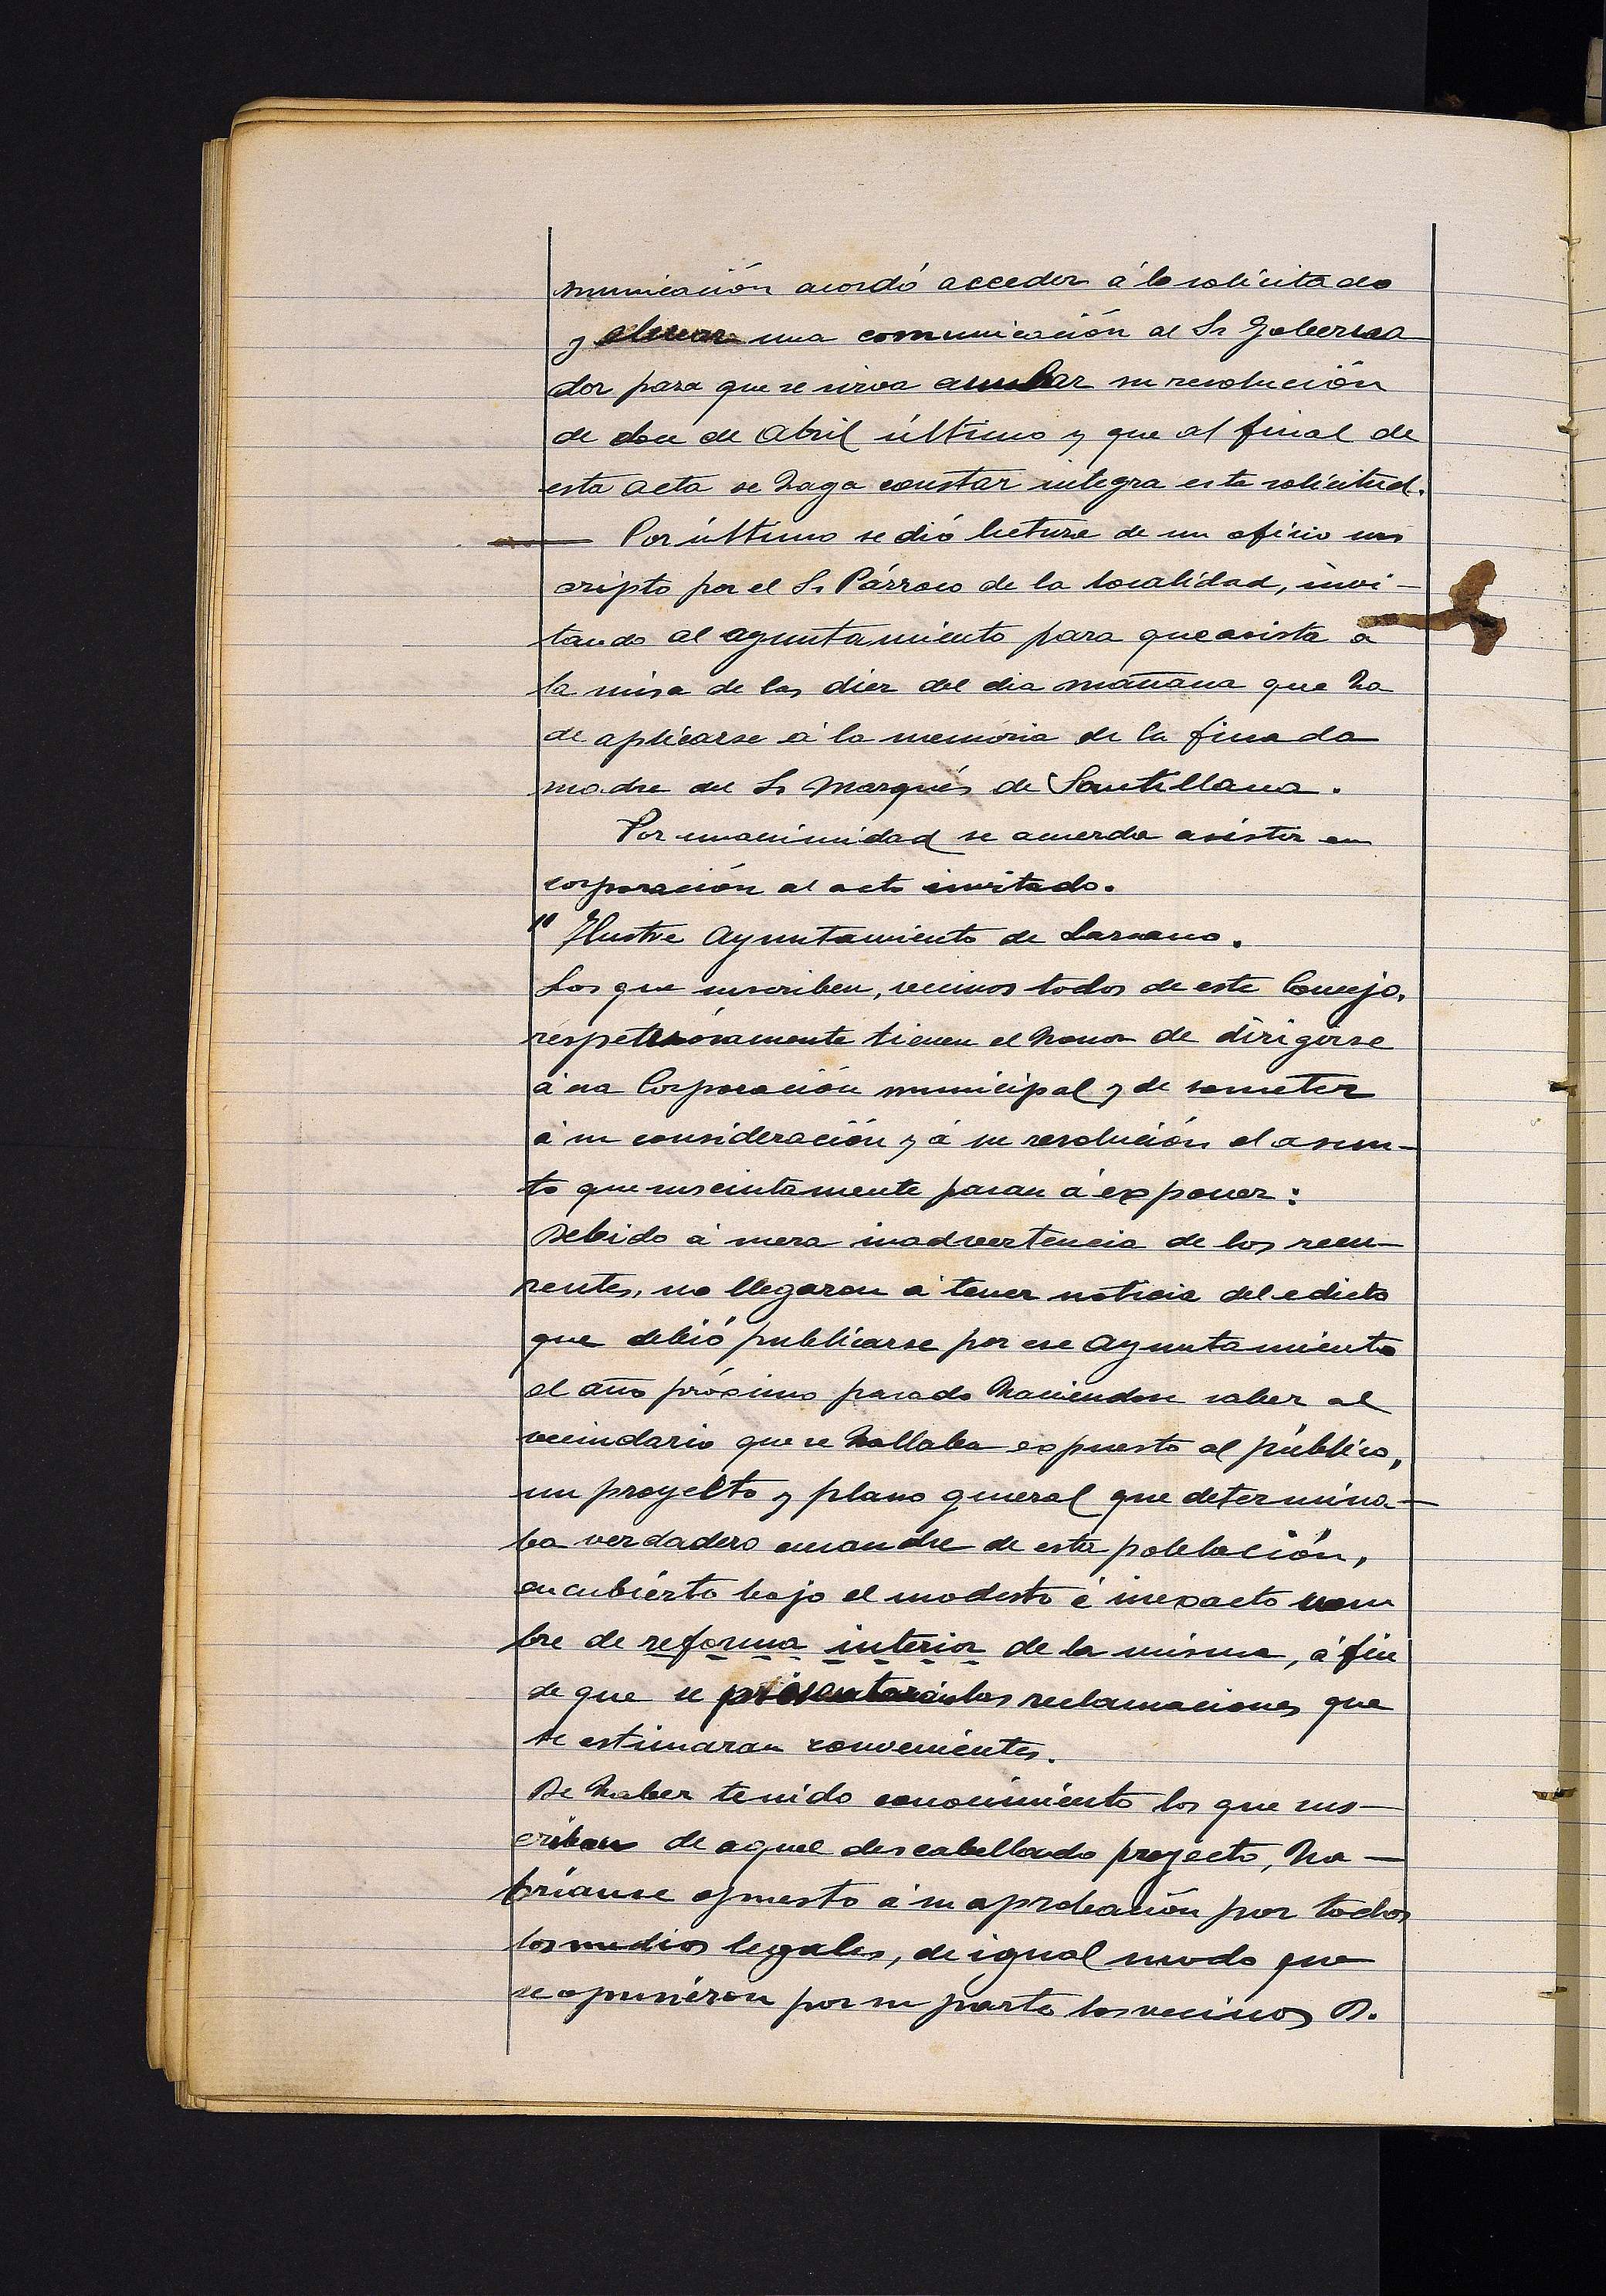 municación acordó acceder á lo solicitado
y elevar una comunicación al Sr Goberna
dor para que se sirva anular su resolución
de doce de Abril último y que al final de
esta acta se haga constar integra esta solicitud.
Por último se dió lectura de un oficio sus
cripto por el Sr Párroco de la localidad, invi-
tando al ayuntamiento para que asista a
la misa de las diez del dia mañana que ha
de aplicarse á la memoria de la finada
madre del Sr Marqués de Santillana.
Por unanimidad se acuerda asistir en
corporación al acto invitado.
"Ilustre Ayuntamiento de Lazcano.
Los que suscriben, vecinos todos de este Concejo,
respetuosamente tienen el honor de dirigirse
á esa Corporación municipal y de someter
á su consideración y á su resolución el asun-
to que suscintamente pasan á exponer:
Debido á mera inadvertencia de los recu-
rrentes, no llegaron á tener noticia del edicto
que debió publicarse por ese Ayuntamiento
el año próximo pasado haciendose saber al
vecindario que se hallaba expuesto al público,
un proyecto y plano general que determina-
ba verdadero ensanche de esta población,
encubierto bajo el modesto é inexacto nom
bre de reforma interior de la misma, á fin
de que se presentarán las reclamaciones que
se estimaran convenientes.
De haber tenido conocimiento los que sus-
criben de aquel descabellado proyecto, ha-
bríanse opuesto á su aprobación por todos
los medios legales, de igual modo que
se opusiéron por su parte los vecinos D.